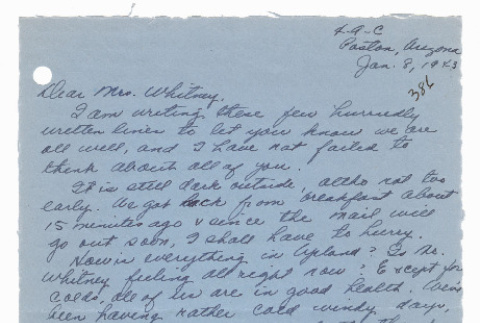 4-A-C
Poston, Arizona
Jan. 8, 1943
386
Dear Mrs. Whitney,
I am writing these few hurriedly
written lines to let you know we are
all well, and I have not failed to
think about all of you.
It is still dark outside, altho not too
early. We got back from breakfast about
15 minutes ago & since the mail will
go out soon, I shall have to hurry.
How is everything in Upland? Is Mr.
Whitney feeling all right now? Except for
colds, all of us are in good health. We've
been having rather cold windy days,